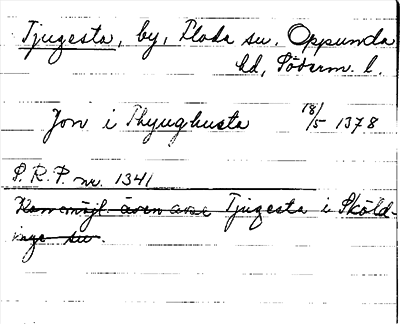 Tjugesta, by, Floda sn. Oppunda
hd, Söderm. l.
Jon i Thyughusta 18/5 1378
P.R.P. nr. 1341
Kan möjl. även avse Tjugesta i Sköld-
inge sn.